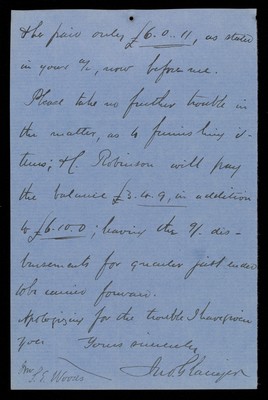 & he paid only £6.0.11, as stated
in your a/c, now before me.
Please take no further trouble in
the matter, as to furnishing it-
ems; & C. Robinson will pay
the balance £3.4.9, in addition
to £6.10.0; leaving the dis-
bursements for quarter just ended
to be carried forward.
Apologizing for the trouble I have given
you
Yours sincerely,
Jno.
Woods